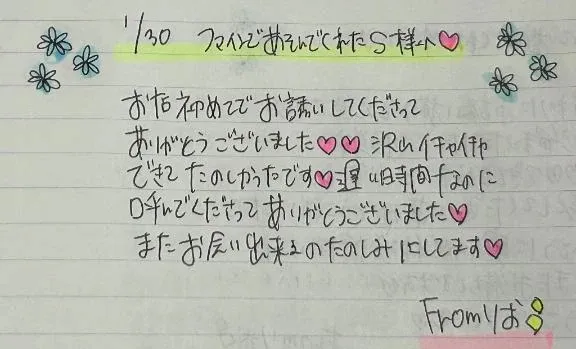 1/30 ファインであそんでくれたS様へ♡
お店初めてでお誘いしてくださって
ありがとうございました♡♡ 沢山イチャイチャ
できて たのしかったです♡遅い時間なのに
呼んでくださって ありがとうございました♡
また お会い出来るのたのしみにしてます♡
Fromりお